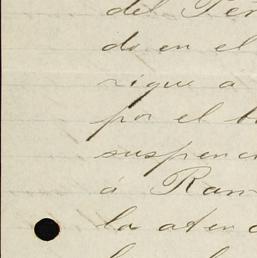 del Per
do en el
rique a
por el b
suspenci
á Ram
la atenc